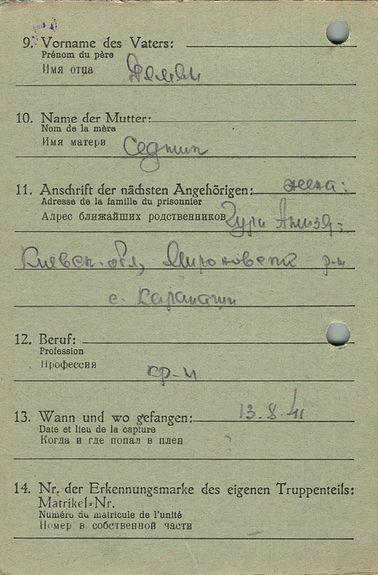 9. Vorname des Vaters:
Prénom du père
Имя отца
10. Name der Mutter:
Nom de la mère
Имя матери
11. Anschrift der nächsten Angehörigen: жена:
Adresse de la famille du prisonnier
Адрес ближайших родственников
Киевск. обл, Мироновский р-н
с. Карапыши
12. Beruf:
Profession
Профессия
кр-н
13. Wann und wo gefangen: 13.8.41
Date et lieu de la capture
Когда и где попал в плен
14. Nr. der Erkennungsmarke des eigenen Truppenteils:
Matrikel-Nr.
Numéro du matricule de l'unité
Номер в собственной части